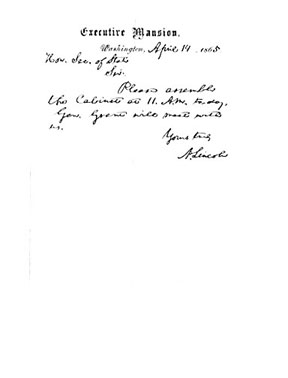 Executive Mansion,
Washington, April 14, 1865
Hon. Sec. of State
Sir.
Please assemble
the Cabinet at 11. A.M. to-day.
Gen. Grant will meet with
us.
Yours truly
A. Lincoln